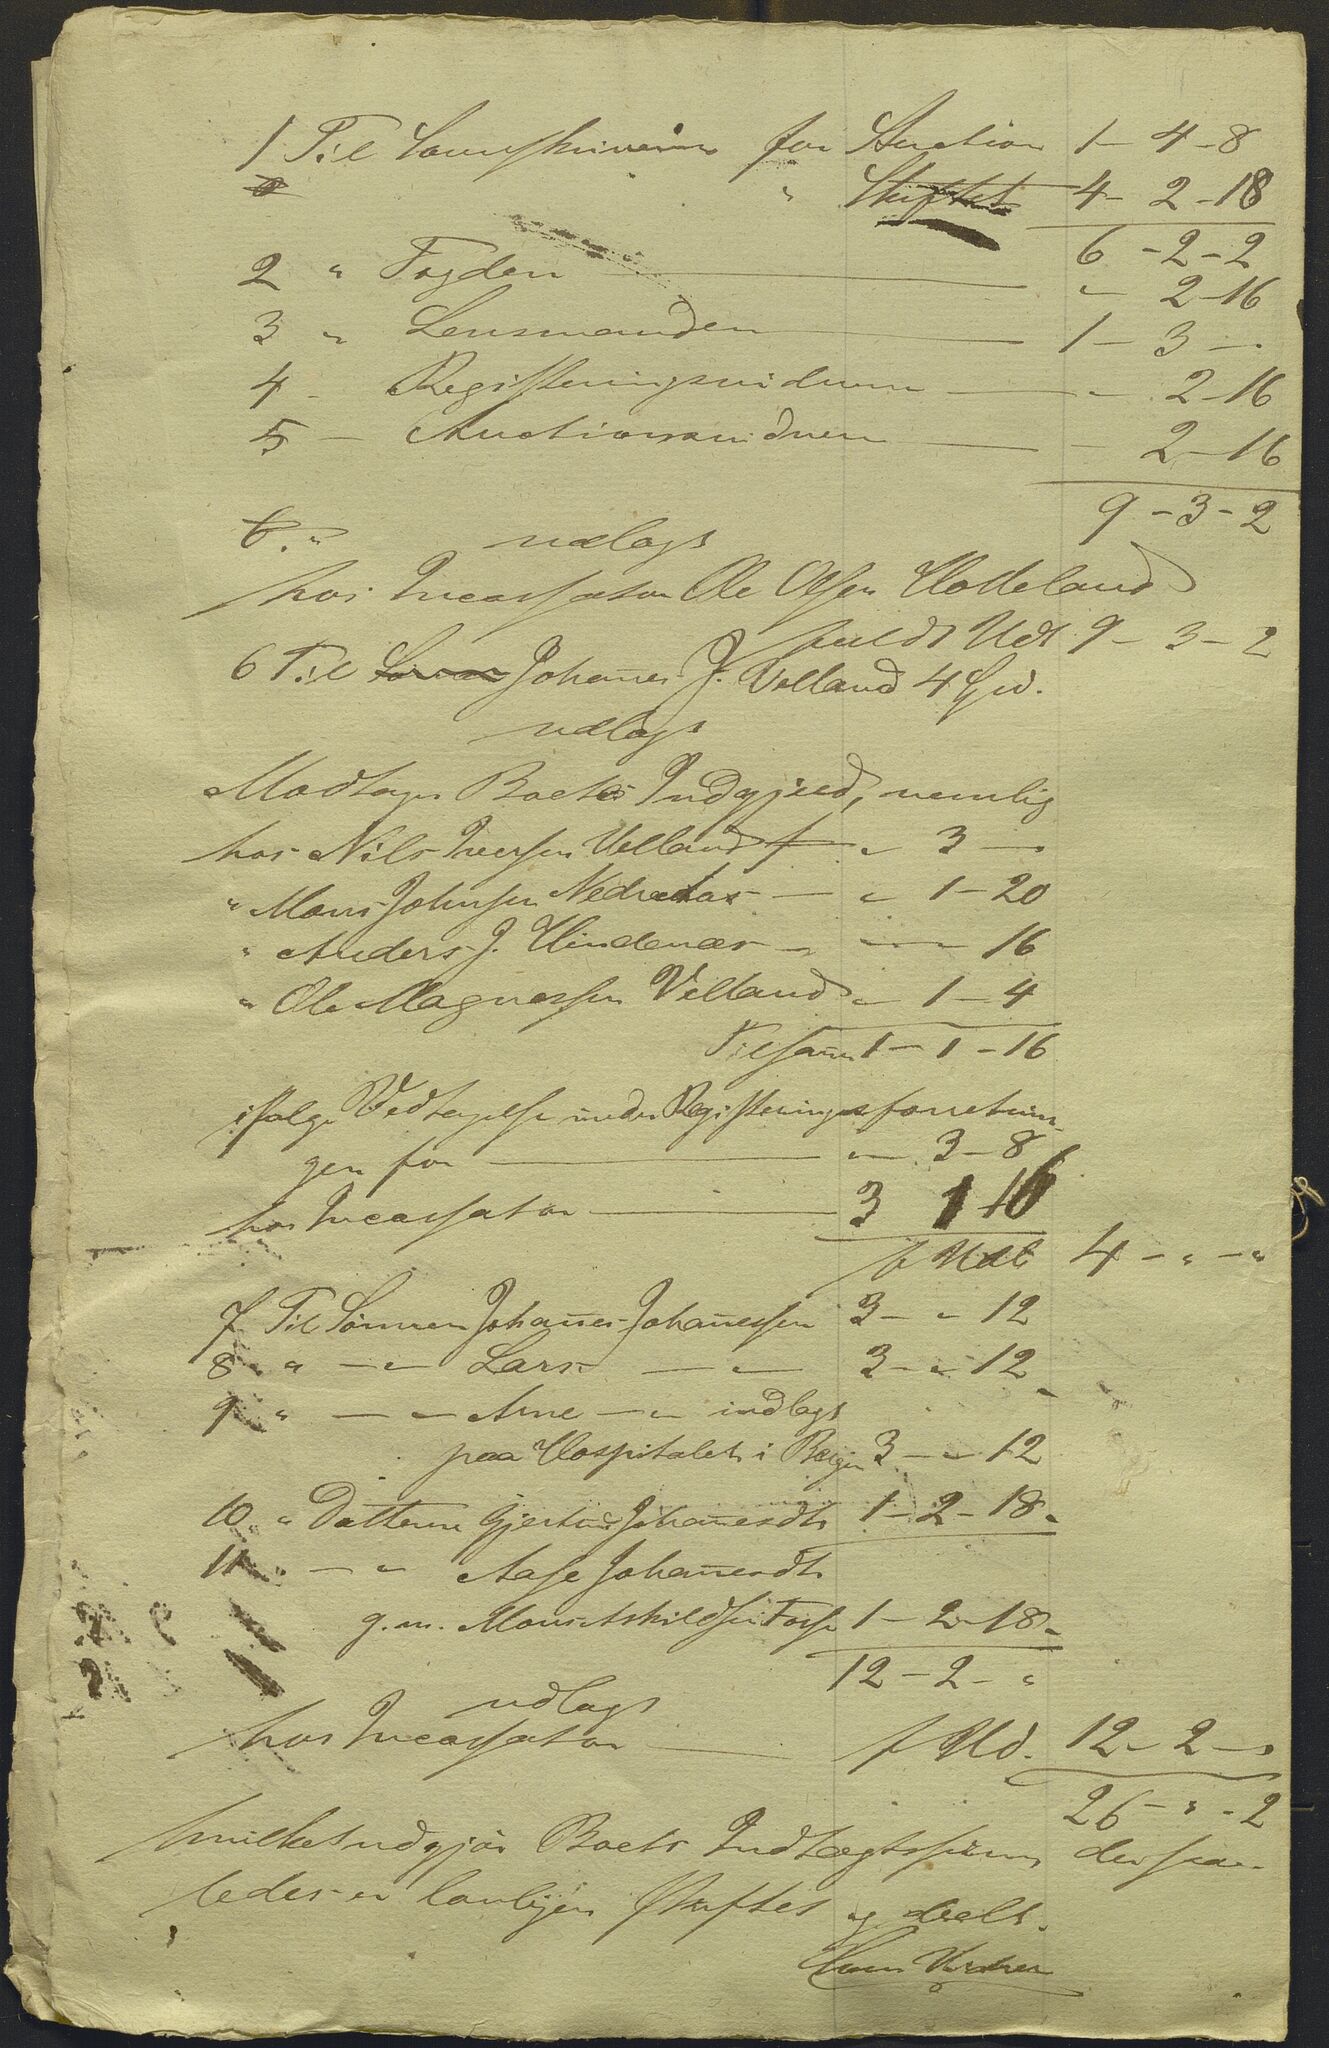 1 Til Sorenskriveren for Auction 1 - 4 - 8
" Skiftet 4 - 2 - 18
6 - 2 - 2
2 " Fogden " 2 - 16
3 " Lensmanden 1 - 3 - "
4 - Registeringsvidnerne " 2 - 16
5 - Auctionsvidnerne - 2 - 16
9 - 3 - 2
6. " udlagt
hos Incassator Ole Olsen Hotteland
fuldt Udl 9 - 3 - 2
6 Til Johanes J. Velland 4 Spd.
udlagt
Modtager Boets Indgjeld, nemlig
hos Nils Iversen Velland " 3 - "
" Mons Johnsen Nedreaas - " 1 - 20
" Anders J. Hindenæs - " - " - 16
" Ole Magnessen Velland " 1 - 4
Tilsam̄ 1 - 1 - 16
ifølge Vedtagelse under Registeringsforretnin-
gen for " 3 - 8
hos Incassator 3 1 16
f Udl 4 - " - "
7 Til Sønnen Johan̄es Johan̄essen 3 - " 12
8 " - " Lars - " 3 - " 12
9 " - " Arne - " udlagt
paa Hospitalet i Bergen 3 - " 12
10 " Datteren Gjertrud Johan̄esdtr 1 - 2 - 18
11 " - " Aase Johan̄esdtr
g. m. Mons Askildsen Fosse 1 - 2 - 18
12 - 2 - "
udlagt
hos Incassator f Ud. 12 - 2 - "
26 - " - 2
hvilket udgjør Boets Indtægtssum̄ der saa-
ledes er lovligen skiftet og deelt.